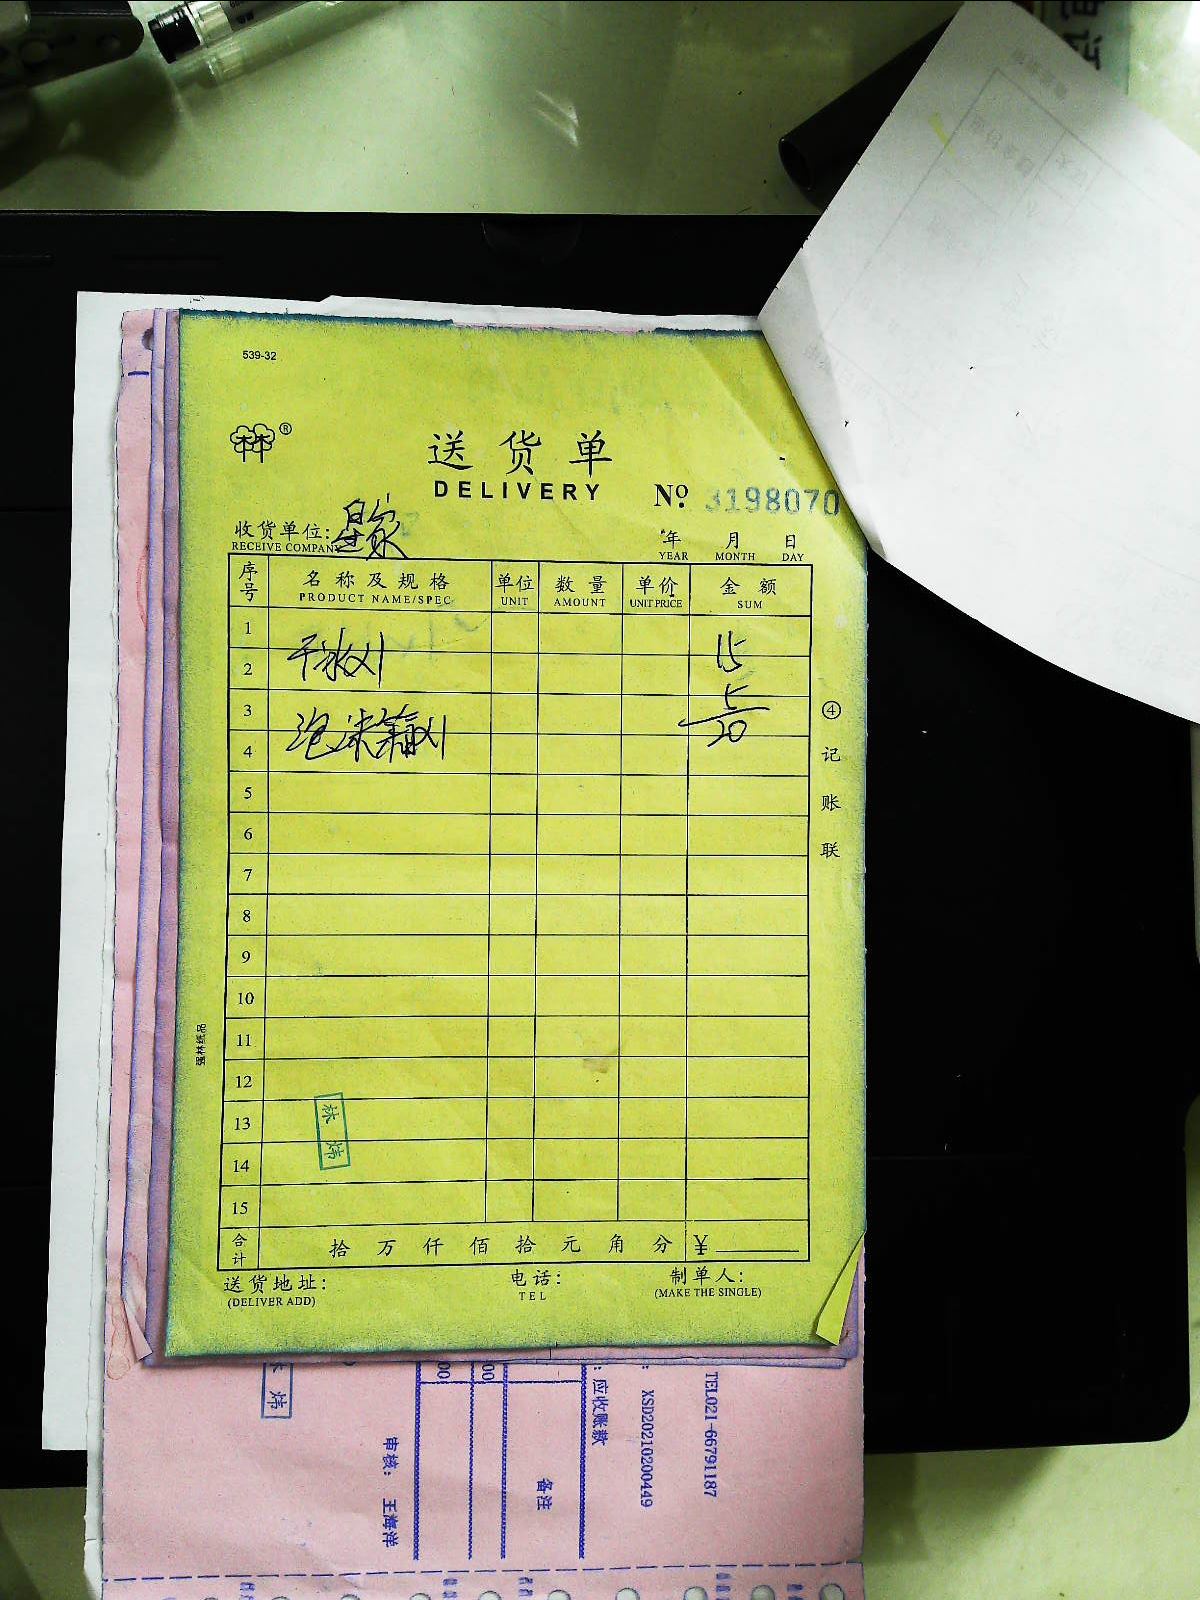 539-32
林林®
送货单
DELIVERY
No. 3198070
收货单位: 皇家
RECEIVE COMPANY
年 月 日
YEAR MONTH DAY
序号 名称及规格 单位 数量 单价 金额
PRODUCT NAME/SPEC UNIT AMOUNT UNIT PRICE SUM
1
干冰X1 15
2
3 5
泡沫箱X1 20
4
5
6
7
8
9
10
11
12
13
14
15
林炜
合计 拾 万 仟 佰 拾 元 角 分 ¥
送货地址: 电话: 制单人:
(DELIVER ADD) TEL (MAKE THE SINGLE)
④记账联
强林纸品
TEL021-66791187
XSD20210200449
: 应收账款
备注
00
00
审核: 王海洋
炜